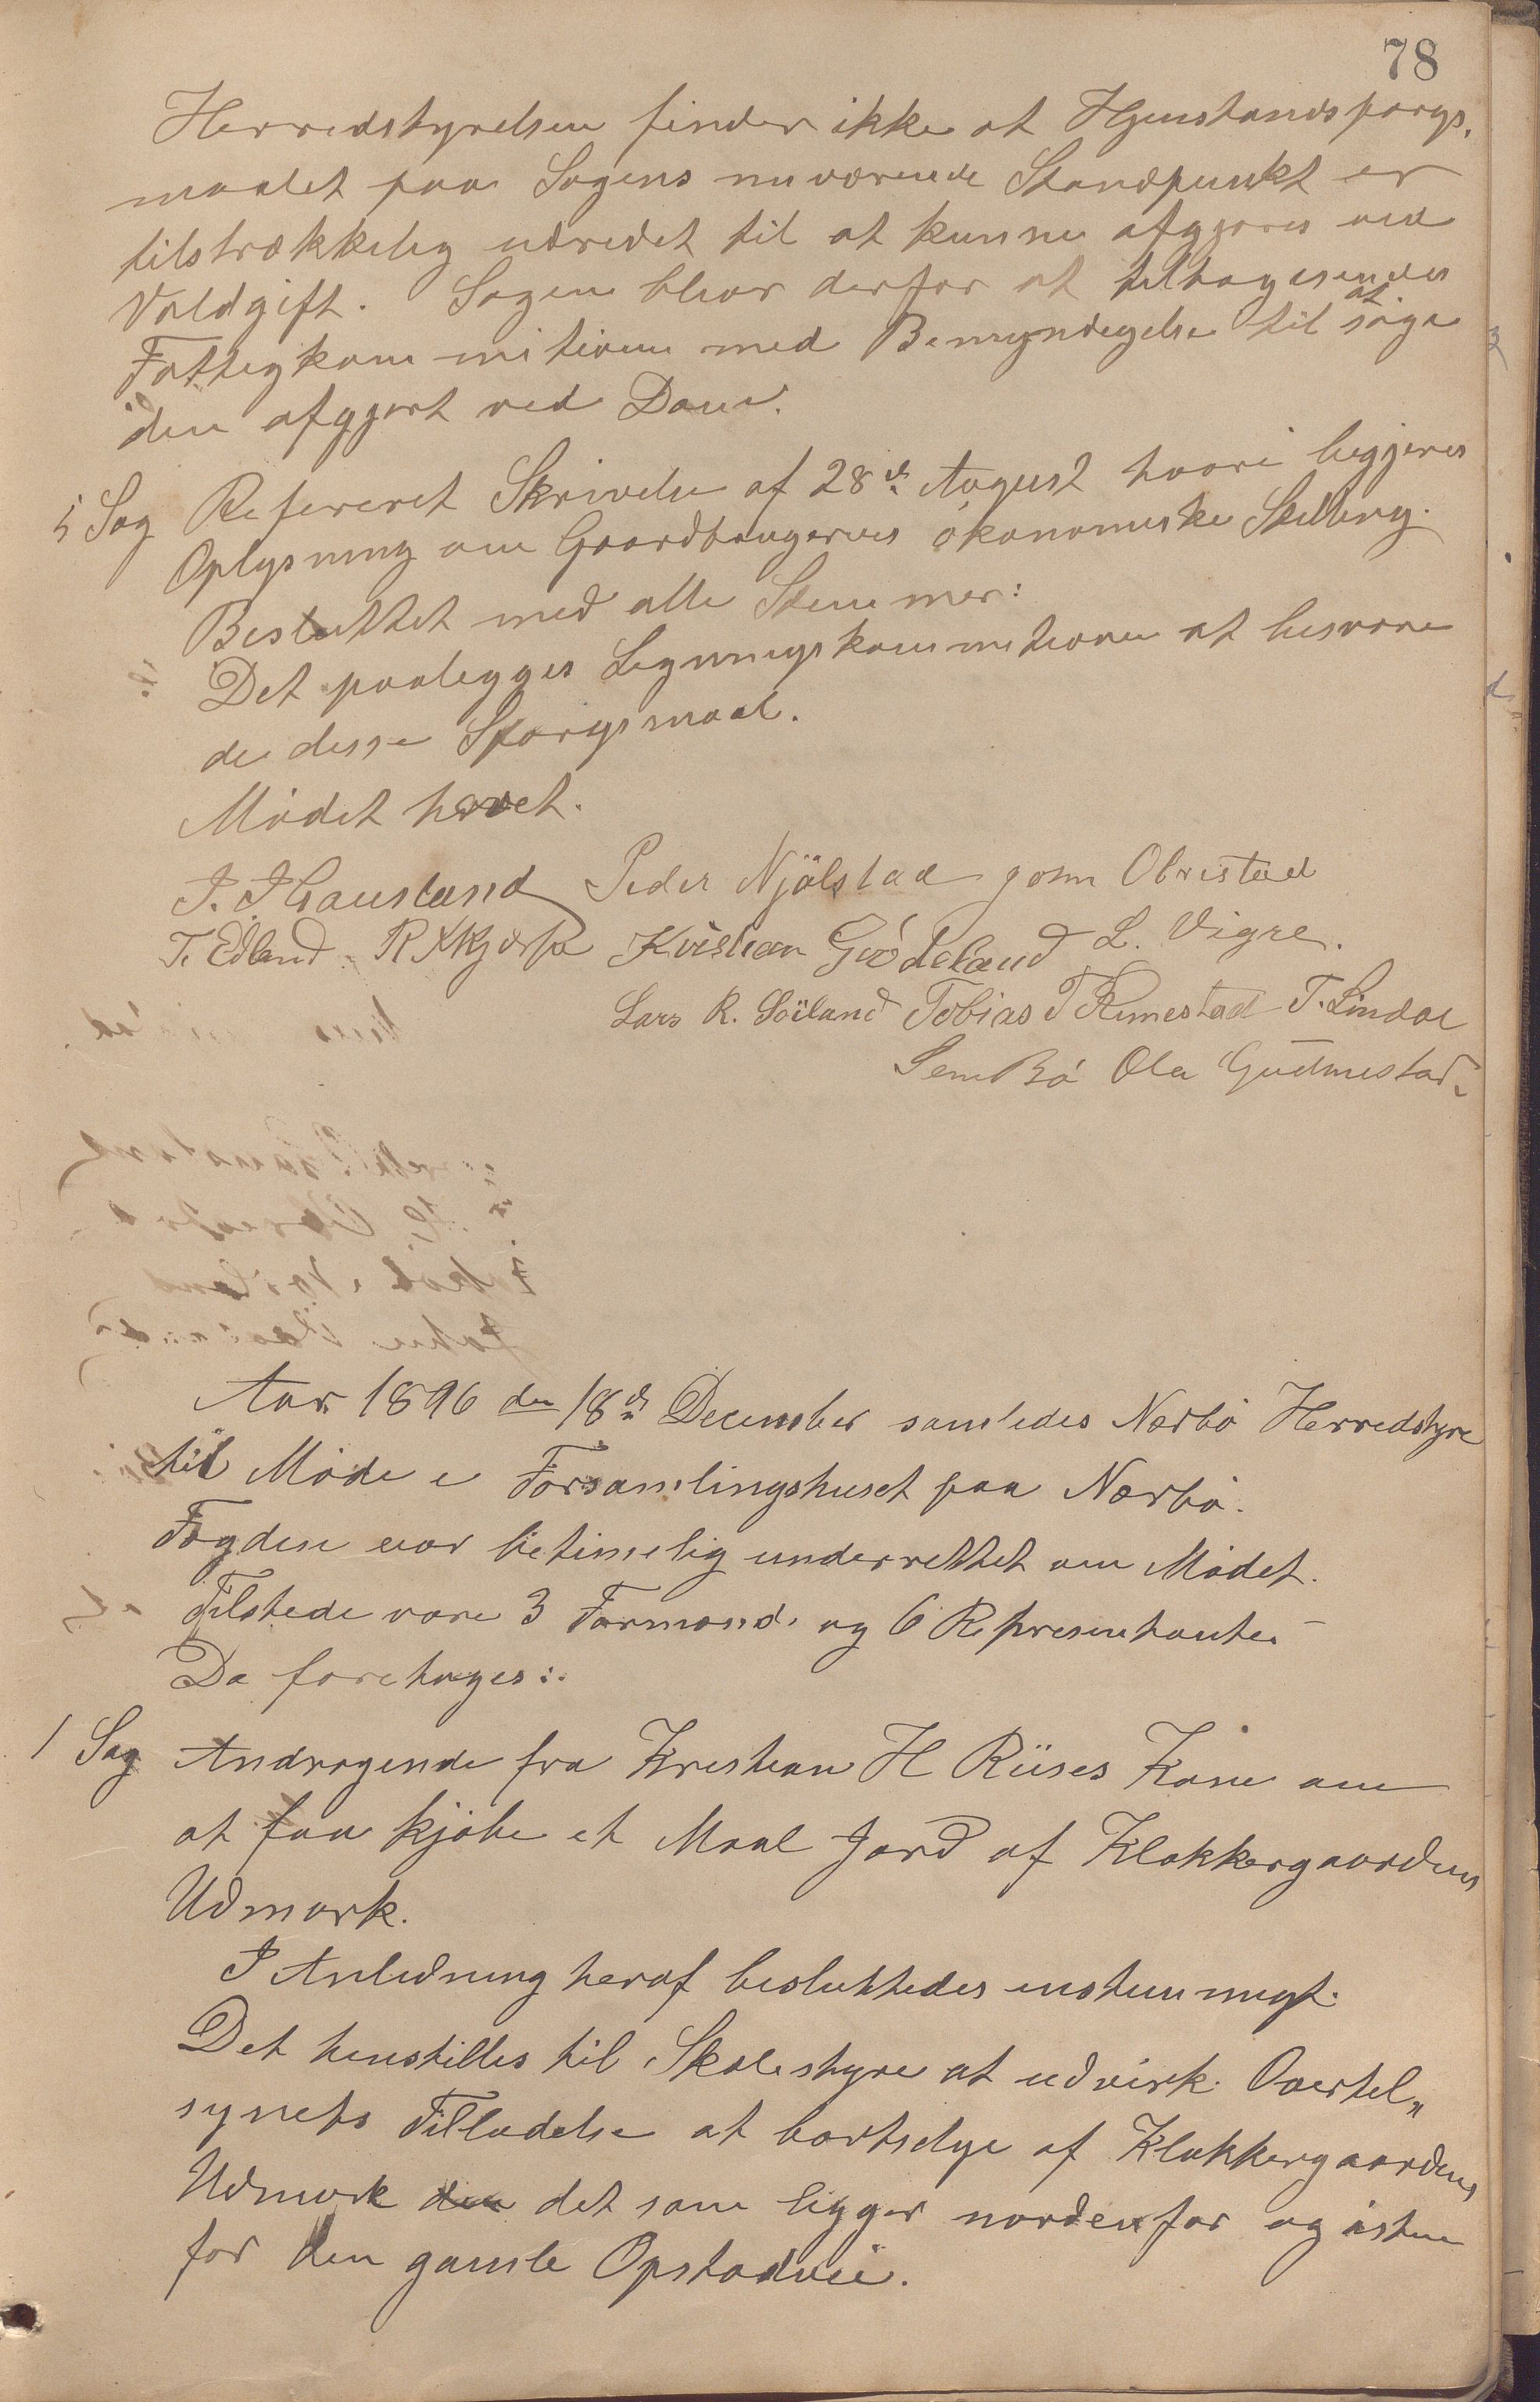 78
Herredstyrelsen finder ikke at Hjemstandsspørgs,
maalet paa Sagens nuværende Standpunkt er
tilstrækkelig udredet til at kunne afgjøres ved
Voldgift. Sagen bliver derfor at tilbagesendes
Fattigkommitionen med Bemyndigelse til at søge
den afgjort ved Dom.
5 Sag Refereret Skrivelse af 28de August hvori begjæres
Oplysning om Gaardbrugernes økonomiske Stilling.
Besluttet med alle Stemmer:
Det paalegges Ligningskommitionen at besvare
de disse Spørgsmaal.
Mødet hævet.
J. Hausland Peder Njålstad John Obrestad
T. Edland Kristian Grødeland L. Vigre.
Lars R. Söiland Tobias T Rimestad T. Lindal
Sem Bö Ola Gudmestad.
Aar 1896 den 18de December samledes Nærbø Herredstyre
til Møde i Forsamlingshuset paa Nærbø.
Fogden var betimelig underrettet om Mødet.
Tilstede vare 3 Formænd og 6 Representanter
Da foretoges:
1 Sag Andragende fra Kristian H Riises Kone om
at faa kjøbe et Maal Jord af Klokkergaardens
Udmark.
I Anledning heraf besluttedes enstemmigt.
Det henstilles til Skolestyre at udvirke Overtil„
synets Tilladelse at bortselge af Klokkergaardens
Udmark den det som ligger nordenfor og østen
for den gamle Opstadvei.